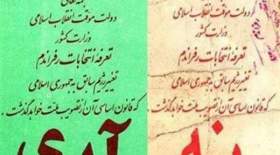 دولت موقت انقلاب اسلامی
وزارت کشور
تعرفه انتخابات رفراندم
تغییر رژیم سابق به جمهوری اسلامی
که قانون اساسی آن از تصویب ملت خواهد گذشت.
نه
دولت موقت انقلاب اسلامی
وزارت کشور
تعرفه انتخابات رفراندم
تغییر رژیم سابق به جمهوری اسلامی
که قانون اساسی آن از تصویب ملت خواهد گذشت.
آری